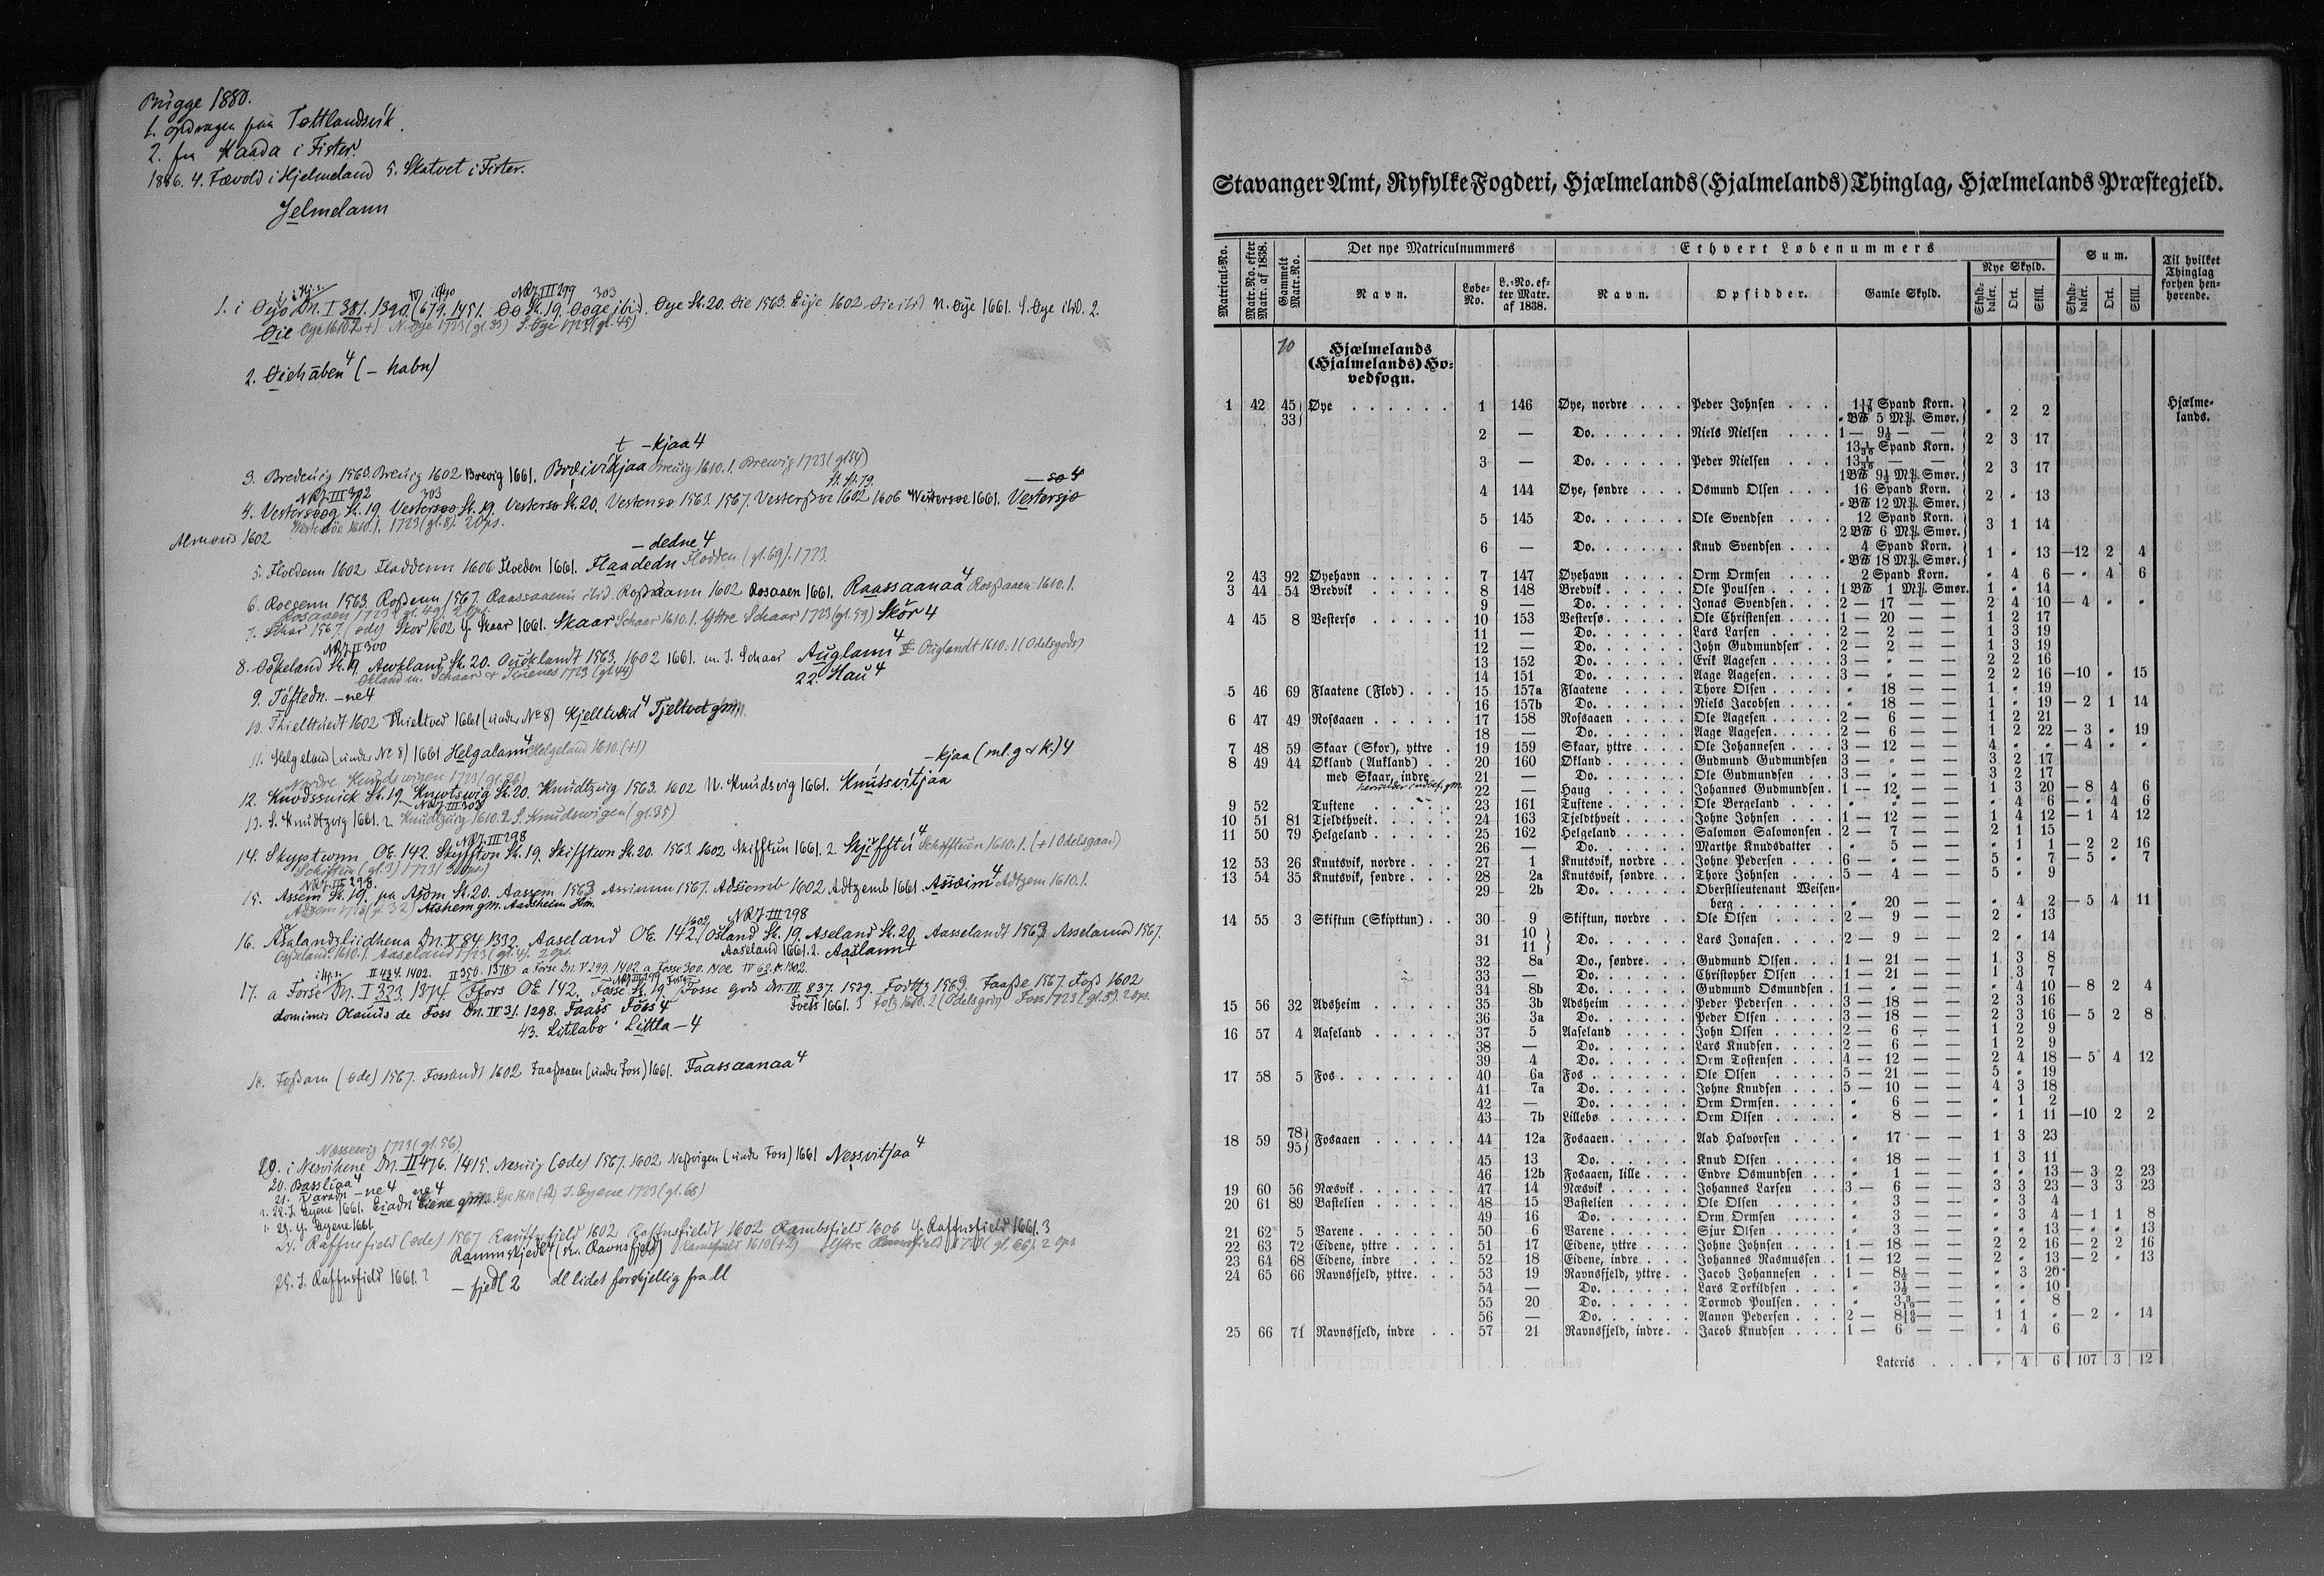 Bugge 1880.
1. opdragen paa Tøttlandsvik.
2. fra Kaada i Fister.
1886. 4. Fævold i Hjelmeland 5. Skatvet i Fister.
Jelmelann
1. i Øyjo Dn. I 381. 1390. (679. 1451. Øø St. 19. Øoge ibid. Øye St. 20. Øie 1563. Øie ibid N. Øye 1661. S. Øye ibid. 2.
NRJ III 299 303
Øie Øye 1610. 2 +) N. Øye 1723 (gl. 33) S. Øye 1723 (gl. 45)
2. Øichāben 4 (– habn)
– kjaa 4
3. Bredeuig 1563. Breuig 1602 Brevig 1661. Brewig 1723 (gl 54)
NRJ. III 302 303
4. Vestersøog St. 19 Vestersøo St. 19. Vestersø St. 20. Vestensø 1563. 1567. 1602 1606 Westersøe 1661. Vestersjø – sø 4
Vestersøe 1610. 1. 1723 (gl. 8). 2 Ops.
– dedne 4
5. Floedenn 1602 Floddenn 1606 Floeden 1661. Flaadedn Flodden (gl. 69). 1723
6. Roesenn 1563. Roßenn 1567. ibid. 1602 Rosaaen 1661. Raassaanaa 4 Rosßaaen 1610. 1.
Rosaaen 1723 (gl. 49) 2 Ops.
7. Skar 1567. (øde) Skor 1602 Y. Skaar 1661. Skaar Schaar 1610. 1. Yttre Schaar 1723 (gl. 59) Skōr 4
NRJ. III 300
8. Oskeland St. 19. Awkland St. 20. Oucklandt 1563. 1602 1661. m. I. Schaar Auglann 4 Ouglandt 1610. 1 (Odelsgods)
Økland m. Schaar 1723 (gl 44) 22. Hau 4
9. Tøftedn. – ne 4
10. Thielttuedt 1602 Thieltved 1661 (under No 8) Kjelltveid 4 Tjeltvet gm.
11. Helgeland (under No 8) 1661 Helgalann 4 Helgeland 1610. (+1)
– kjaa (ml. g & k.) 4
Nordre Knudswigen 1723 (gl. 26)
12. Knødssuick St. 19. Knwtswig St. 20. Knudtzuig 1563. 1602 N. Knudsvig 1661. Knutsvitjaa
NRJ. III 303
13. S. Knudtzvig 1661. 2 Knudtzuig 1610. 2. S. Knudswigen (gl. 35)
NRJ. III 298
14. Skyptwnn OE. 142. Skyfftøn St. 19. Skifftwn St. 20. 1563. 1602 Skifftun 1661. 2. Skjifftu 4 Schifftuen 1610. 1. (+1 Odelsgaard)
Schiftun (gl. 3) 1723 (3 Ops)
NRJ. III 298.
15. Assem St. 19. paa Asom St. 20. Aassem 1563 Assimum 1567. Adssemb 1602 Adtzemb 1661. Asseim 4 Adtzem 1610. 1.
Adsem 1723 (gl. 32) Atshem gm. Aadsheim Hm.
1602 NRJ III 298
16. Asalandzliidhena Dn. V 84. 1332. Aaseland OE. 142. Osland St. 19. Aseland St. 20. Aasselandt 1563. Asseland 1567.
Osßeland 1610. 1. Aaseland 1723 (gl. 4). 2 Ops. Aaseland 1661. 2. Aaslann 4
II 434. 1402. II 350. 1378. a Forse Dn. V 299. 1402. a Fosse 300. 1402. IV 62. c. 1302.
17. a Forse Dn. I 323. 1374. Ffors OE. 142. Fosse St. 19. Fosse gods Dn. III 837. 1539. Fodttz 1563. Faasse 1567. Foss 1602
dominus Olauus de Foss Dn. IV 31. 1298. Faass Fōss 4 Foess 1661. 3 Fotz 1610. 2 (Odelsgods) Foss 1723 (gl. 5). 2 Ops.
43. Litlabø Littla – 4
18. Foßam (øde) 1567. Fossandt 1602 Faaßaaen (under Foss) 1661. Faassaanaa 4
Nessewig 1723 (gl. 56)
19. i Nesvikene Dn. II 476. 1415. Nesuig (øde) 1567. 1602 Neßvigen (under Foss) 1661 Nessvitjaa 4
20. Bassliaa 4
21. Varadn – ne 4
22. I. Eyene 1661. Eiadn Eiene gm. Eye 1610 (+2) I. Eyene 1723 (gl. 68)
23. Y. Eyene 1661
24. Raffnefield (øde) 1567 Rauffnsfield 1602 Raffnsfieldt 1602 Rambsfield 1606 Y. Raffnsfield 1661. 3
Rammskjedl 4 (sv. Ravnsfjeld) Ramsfield 1610 (+2) Yttre Ramsfield 1723 (gl. 66). 2 Ops
25. I. Raffnsfield 1661. 2 – fjedl 2 dl lidet forskjellig fra ll
Stavanger Amt, Ryfylke Fogderi, Hjælmelands (Hjalmelands) Thinglag, Hjælmelands Præstegjeld.
Matricul-No. | Matr.-No. efter Matr. af 1838. | Gammelt Matr.-No. | Det nye Matriculnummers | Ethvert Løbenummers | Sum. | Til hvilket Thinglag forhen henhørende.
Navn. | Løbe-No. | L.-No. efter Matr. af 1838. | Navn. | Opsidder. | Gamle Skyld. | Nye Skyld. Skylddaler. Ort. Skill. | Skylddaler. Ort. Skill.
10 Hjælmelands (Hjalmelands) Hovedsogn.
1 42 45 33 Øye 1 146 Øye, nordre Peder Johnsen 1 1/18 Spand Korn. " B℔ 5 M℔ Smør. " 2 2 Hjælmelands.
2 — Do. Niels Nielsen 1 — 9½ — — 13 1/36 Spand Korn. 2 3 17
3 — Do. Peder Nielsen 13 1/36 — — 1 B℔ 9½ M℔ Smør. 2 3 17
4 144 Øye, søndre Osmund Olsen 16 Spand Korn. " B℔ 12 M℔ Smør. 2 " 13
5 145 Do. Ole Svendsen 12 Spand Korn. 2 B℔ 6 M℔ Smør. 3 1 14
6 — Do. Knud Svendsen 4 Spand Korn. " B℔ 18 M℔ Smør. 1 " 13 —12 2 4
2 43 92 Øyehavn 7 147 Øyehavn Orm Ormsen 2 Spand Korn. " 4 6 — " 4 6
3 44 54 Bredvik 8 148 Bredvik Ole Poulsen 1 B℔ 1 M℔ Smør. 1 " 14
9 — Do. Jonas Svendsen 2 — 17 — — 2 4 10 — 4 " "
4 45 8 Vestersø 10 153 Vestersø Ole Christensen 1 — 20 — — 1 2 17
11 — Do. Lars Larsen 2 — 2 — — 1 3 19
12 — Do. John Gudmundsen 2 — 2 — — 1 3 19
13 152 Do. Erik Aagesen 3 — " — — 2 2 16
14 151 Do. Aage Aagesen 3 — " — — 2 2 16 —10 " 15
5 46 69 Flaatene (Flod) 15 157a Flaatene Thore Olsen " 18 — — 1 " 19
16 157b Do. Niels Jacobsen " 18 — — 1 " 19 — 2 1 14
6 47 49 Rossaaen 17 158 Rossaaen Ole Aagesen 2 — 6 — — 1 2 21
18 — Do. Aage Aagesen 2 — 6 — — 1 2 22 — 3 " 19
7 48 59 Skaar (Skor), yttre 19 159 Skaar, yttre Ole Johannesen 3 — 12 — — 4 " " — 4 " "
8 49 44 Økland (Aukland) 20 160 Økland Gudmund Gudmundsen 3 — " — — 3 2 17
med Skaar, indre 21 — Do. Ole Gudmundsen 3 — " — — 3 2 17
22 — Haug Johannes Gudmundsen 1 — 12 — — 1 3 20 — 8 4 6
9 52 Tuftene 23 161 Tuftene Ole Bergeland " " — — " 4 6 — " 4 6
10 51 81 Tjeldthveit 24 163 Tjeldthveit Johne Johnsen 1 — 12 — — 1 4 12 — 1 4 12
11 50 79 Helgeland 25 162 Helgeland Salomon Salomonsen 2 — 7 — — 2 1 15
26 — Do. Marthe Knudsdatter " 5 — — " 1 1 — 2 2 16
12 53 26 Knutsvik, nordre 27 1 Knutsvik, nordre Johne Pedersen 6 — " — — 5 " 7 — 5 " 7
13 54 35 Knutsvik, søndre 28 2a Knutsvik, søndre Thore Johnsen 5 — 4 — — 5 " 9
29 2b Do. Oberstlieutenant Weisenberg " 20 — — " 4 2 — 5 4 11
14 55 3 Skiftun (Skipttun) 30 9 Skiftun, nordre Ole Olsen 2 — 9 — — 2 " 13
31 10 11 Do. Lars Jonasen 2 — 9 — — 2 " 14
32 8a Do., søndre Gudmund Olsen 1 — 21 — — 1 3 8
33 — Do. Christopher Olsen 1 — 21 — — 1 3 7
34 8b Do. Gudmund Osmundsen 1 — " — — " 4 10 — 8 2 4
15 56 32 Adsheim 35 3b Adsheim Peder Pedersen 3 — 18 — — 2 3 16
36 3a Do. Peder Olsen 3 — 18 — — 2 3 16 — 5 2 8
16 57 4 Aaseland 37 5 Aaseland John Olsen 2 — 6 — — 1 2 9
38 — Do. Lars Knudsen 2 — 6 — — 1 2 9
39 4 Do. Orm Tostensen 4 — 12 — — 2 4 18 — 5 4 12
17 58 5 Fos 40 6a Fos Ole Olsen 5 — 21 — — 5 " 19
41 7a Do. Johne Knudsen 5 — 10 — — 4 3 18
42 — Do. Orm Ormsen " 6 — — " 1 2
43 7b Lillebø Orm Olsen " 8 — — " 1 11 —10 2 2
18 59 78 95 Fosaaen 44 12a Fosaaen Aad Halvorsen " 17 — — 1 3 23
45 13 Do. Knud Olsen " 18 — — 1 3 11
46 12b Fosaaen, lille Endre Osmundsen " 1 — — " " 13 — 3 2 23
19 60 56 Næsvik 47 14 Næsvik Johannes Larsen 3 — 6 — — 3 3 23 — 3 3 23
20 61 89 Bastelien 48 15 Bastelien Ole Olsen " 3 — — " 3 4
49 16 Do. Orm Ormsen " 3 — — " 3 4 — 1 1 8
21 62 5 Varene 50 6 Varene Sjur Olsen " 3 — — " " 13 — " " 13
22 63 72 Eidene, yttre 51 17 Eidene, yttre Johne Johnsen 1 — 18 — — 2 2 16 — 2 2 16
23 64 68 Eidene, indre 52 18 Eidene, indre Johannes Rasmussen 1 — 12 — — 2 " 13 — 2 " 13
24 65 66 Ravnsfjeld, yttre 53 19 Ravnsfjeld, yttre Jacob Johannesen 1 — 8½ — — " 3 20
54 — Do. Lars Torkildsen " 3½ — — " " 10
55 20 Do. Tormod Poulsen " 3 3/16 — — " " 8
56 — Do. Aanon Pedersen 2 — 8 — — 1 1 " — 2 " 14
25 66 71 Ravnsfjeld, indre 57 21 Ravnsfjeld, indre Jacob Knudsen 1 — 6 — — " 4 6
Lateris " 4 6 107 3 12